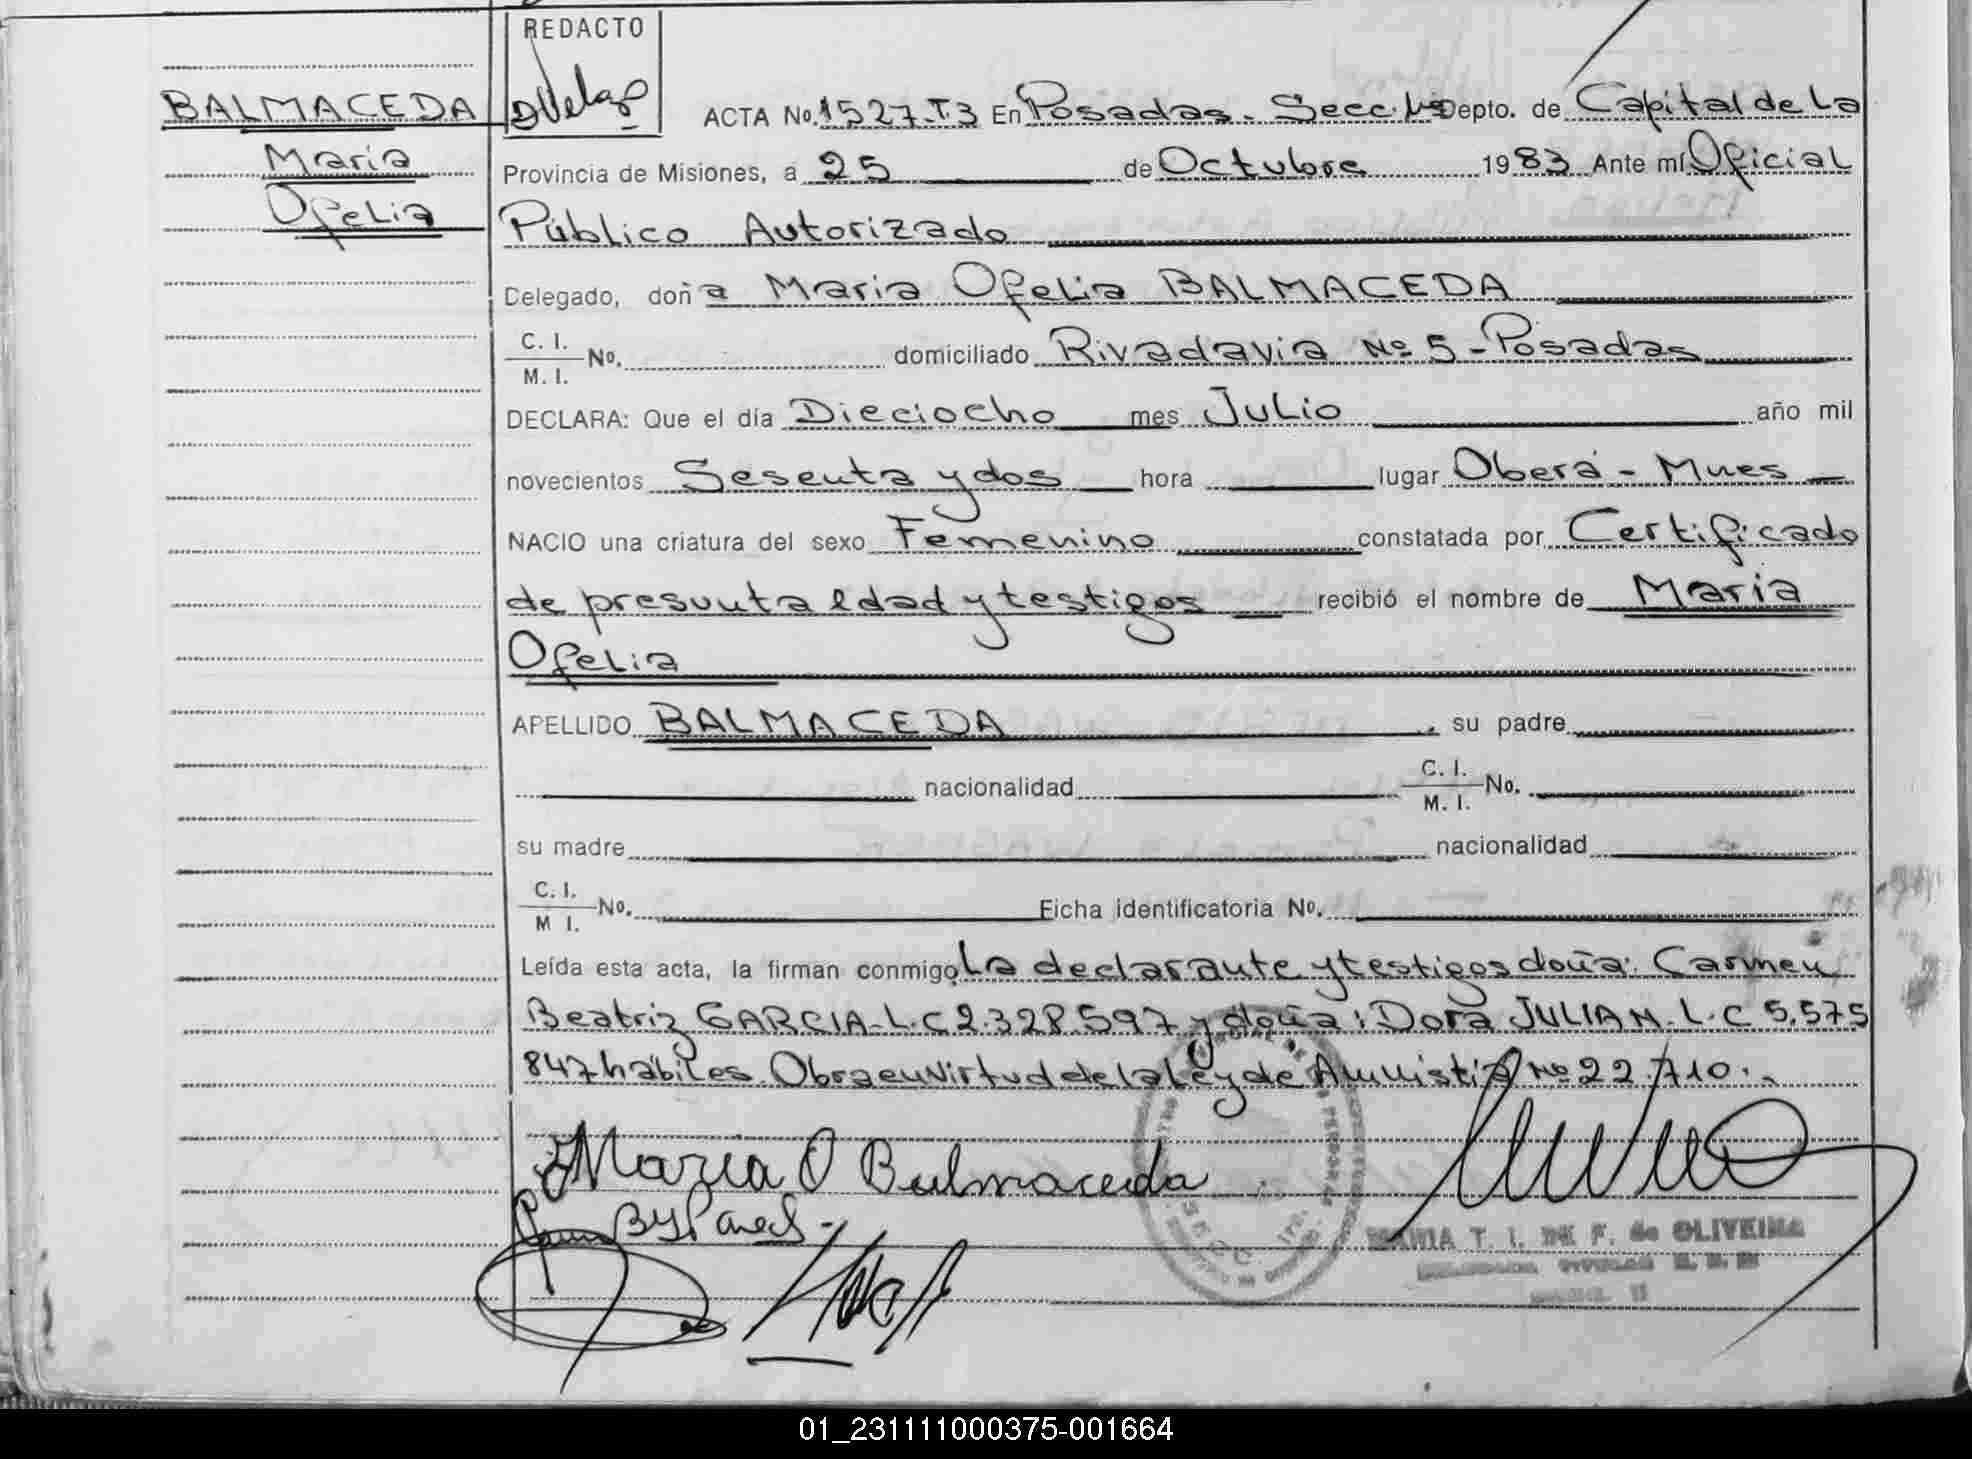 REDACTO
BALMACEDA
Maria
Ofelia
ACTA No. 1527-T3 En Posadas - Secc. 1º Depto. de Capital de La
Provincia de Misiones, a 25 de Octubre 1983 Ante mí Oficial
Público Autorizado
Delegado, doña Maria Ofelia BALMACEDA
C. I.
M. I. No. domiciliado Rivadavia Nº 5 - Posadas
DECLARA: Que el día Dieciocho mes Julio año mil
novecientos Sesenta y dos hora lugar Oberá - Mnes
NACIO una criatura del sexo Femenino constatada por Certificado
de presunta edad y testigos recibió el nombre de Maria
Ofelia
APELLIDO BALMACEDA, su padre
nacionalidad C. I.
M. I. No.
su madre nacionalidad
C. I.
M I. No. Ficha identificatoria No.
Leída esta acta, la firman conmigo, La declarante y testigos doña: Carmen
Beatriz GARCIA - L.C 2.328.597 y doña: Dora JULIAN. L.C 5.575
847 hábiles. Obra en virtud de la Ley de Amnistia Nº 22.710.-
Maria O Balmaceda
MARIA T. I. DE F. de OLIVEIRA
01_231111000375-001664